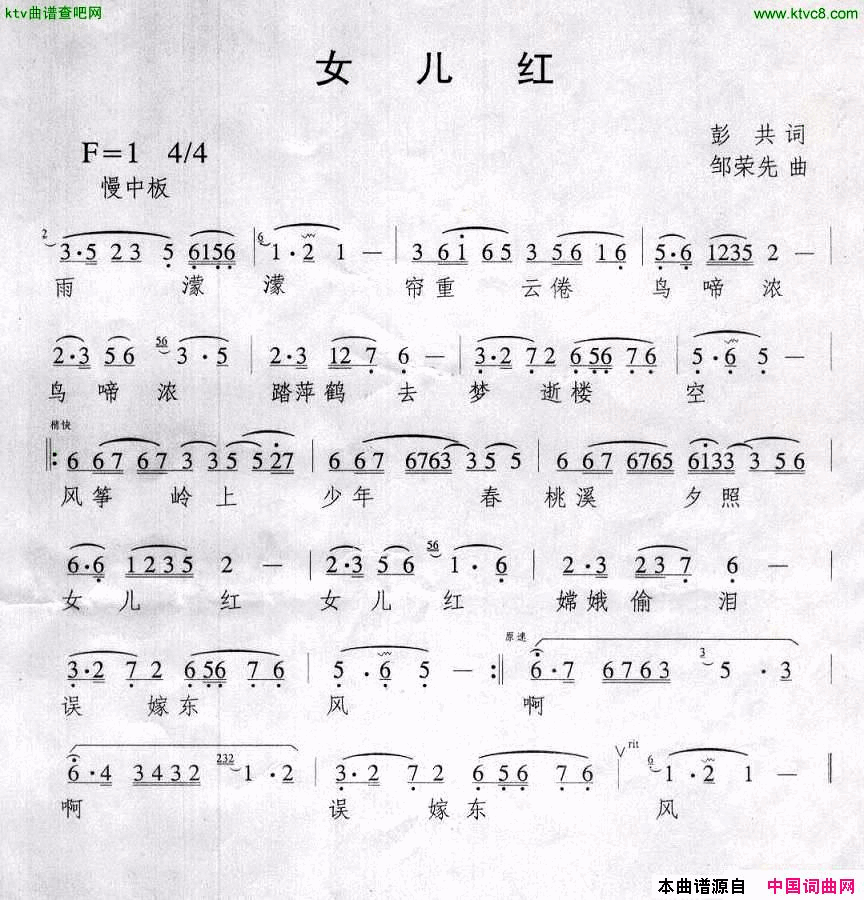 ktv曲谱查吧网 www.ktvc8.com
女 儿 红
彭 共 词
F=1 4/4
邹荣先 曲
慢中板
2 3·5 23 5 6156 | 6 1·2 1 — | 3 61 65 35 61 16 | 5·6 1235 2 — |
雨 濛 濛 帘重 云倦 鸟 啼 浓
2·3 56 56 3·5 | 2·3 127 6 — | 3·2 72 656 76 | 5·6 5 — |
鸟 啼 浓 踏萍鹤 去 梦 逝楼 空
稍快
6 67 67 3 35 527 | 6 67 6763 35 | 6 67 6765 6133 356
风筝 岭上 少年 春 桃溪 夕照
6·6 1235 2 — | 2·3 5 6 56 1·6 | 2·3 56 237 6 — |
女 儿 红 女 儿 红 嫦娥偷 泪
原速
3·2 72 656 76 | 5·6 5 — :‖ 6·7 6763 3 5·3
误 嫁东 风 啊
rit
6·4 3432 232 1·2 | 3·2 72 656 76 | 6 1·2 1 — ‖
啊 误 嫁东 风
本曲谱源自 中国词曲网